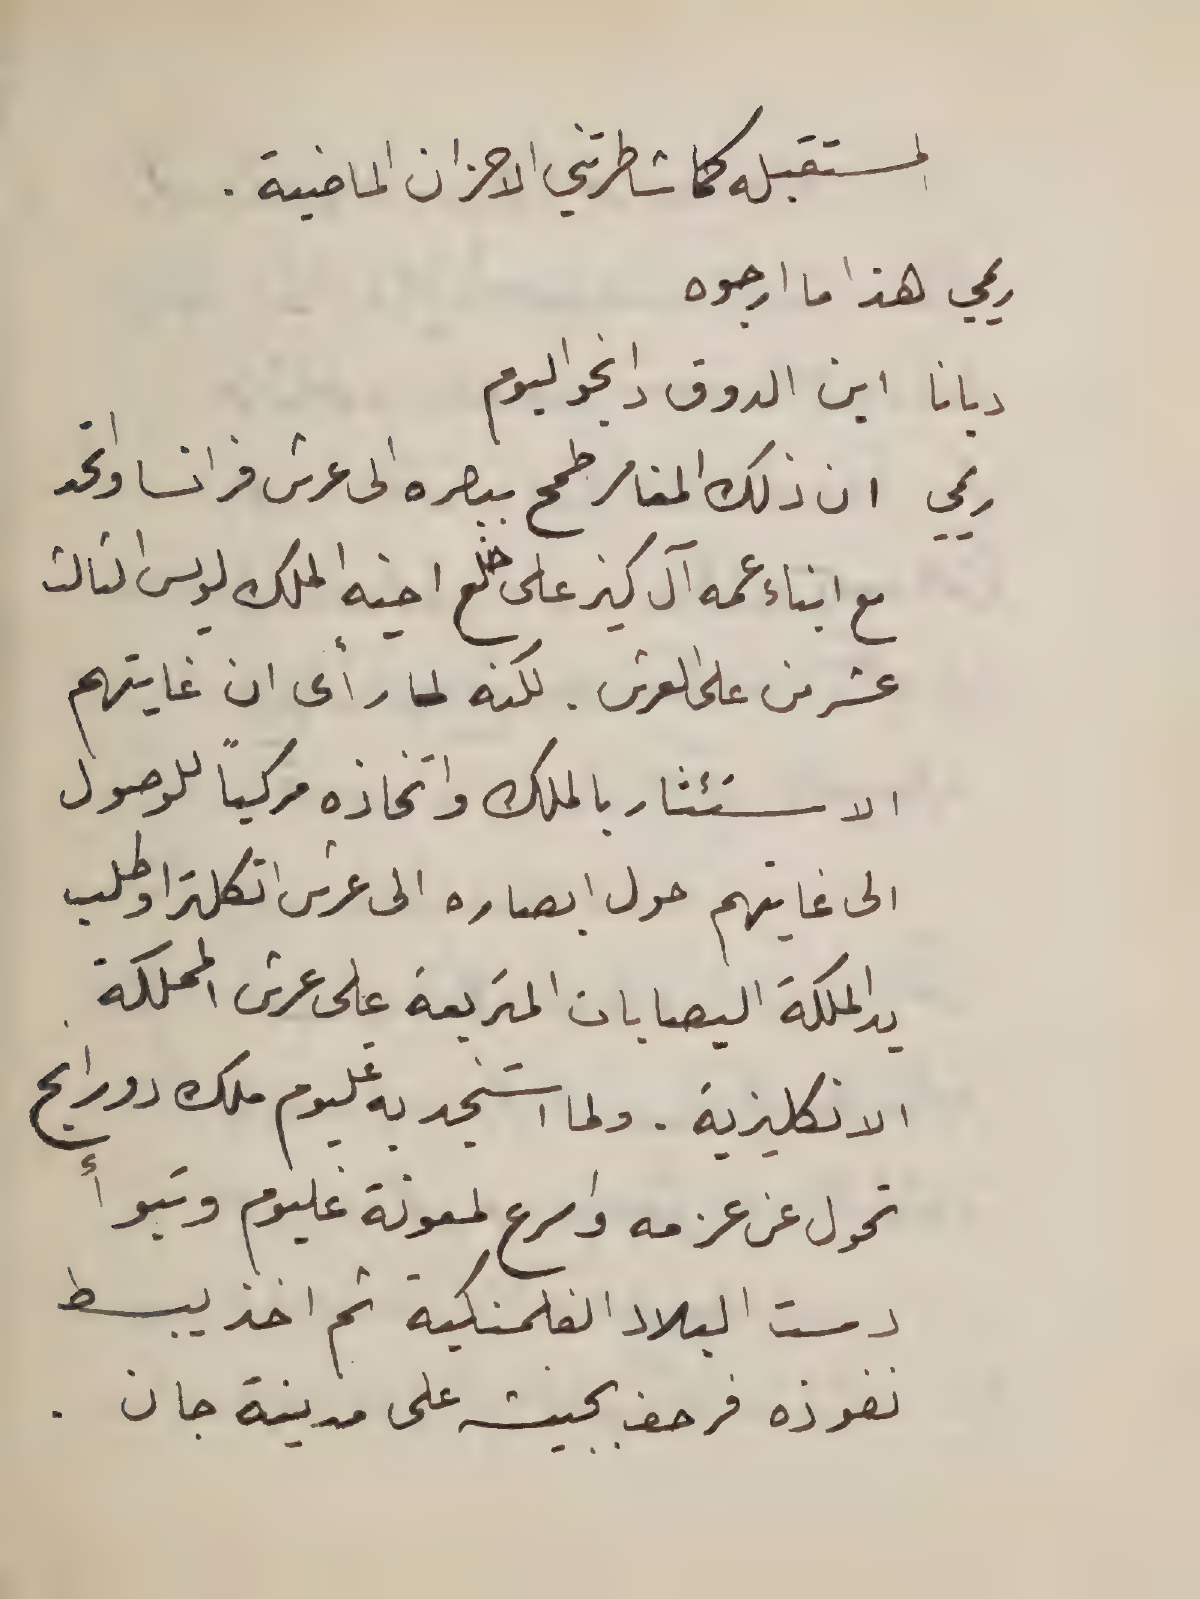 المستقبله كما شاطرتني الاحزان الماضية .
ريمي هذا ما ارجوه
ديانا اين الدوق دانجو اليوم
ريمي ان ذلك المغامر طمح ببصره الى عرش فرانسا واتحد
مع ابناء عمه آل كيز على خلع اخيه الملك لويس الثالث
عشر من على العرش . لكنه لما رأى ان غايتهم
الاستئثار بالملك واتخاذه مركباً للوصول
الى غايتهم حول ابصاره الى عرش انكلترا وطلب
يد الملكة اليصابات المتربعة على عرش المملكة
الانكليزية . ولما استنجد به غليوم ملك دورانج
تحول عن عزمه واسرع لمعونة غليوم وتبوأ
دست البلاد الفلمنكية ثم اخذ يبسط
نفوذه فزحف بجيشه على مدينة جان .